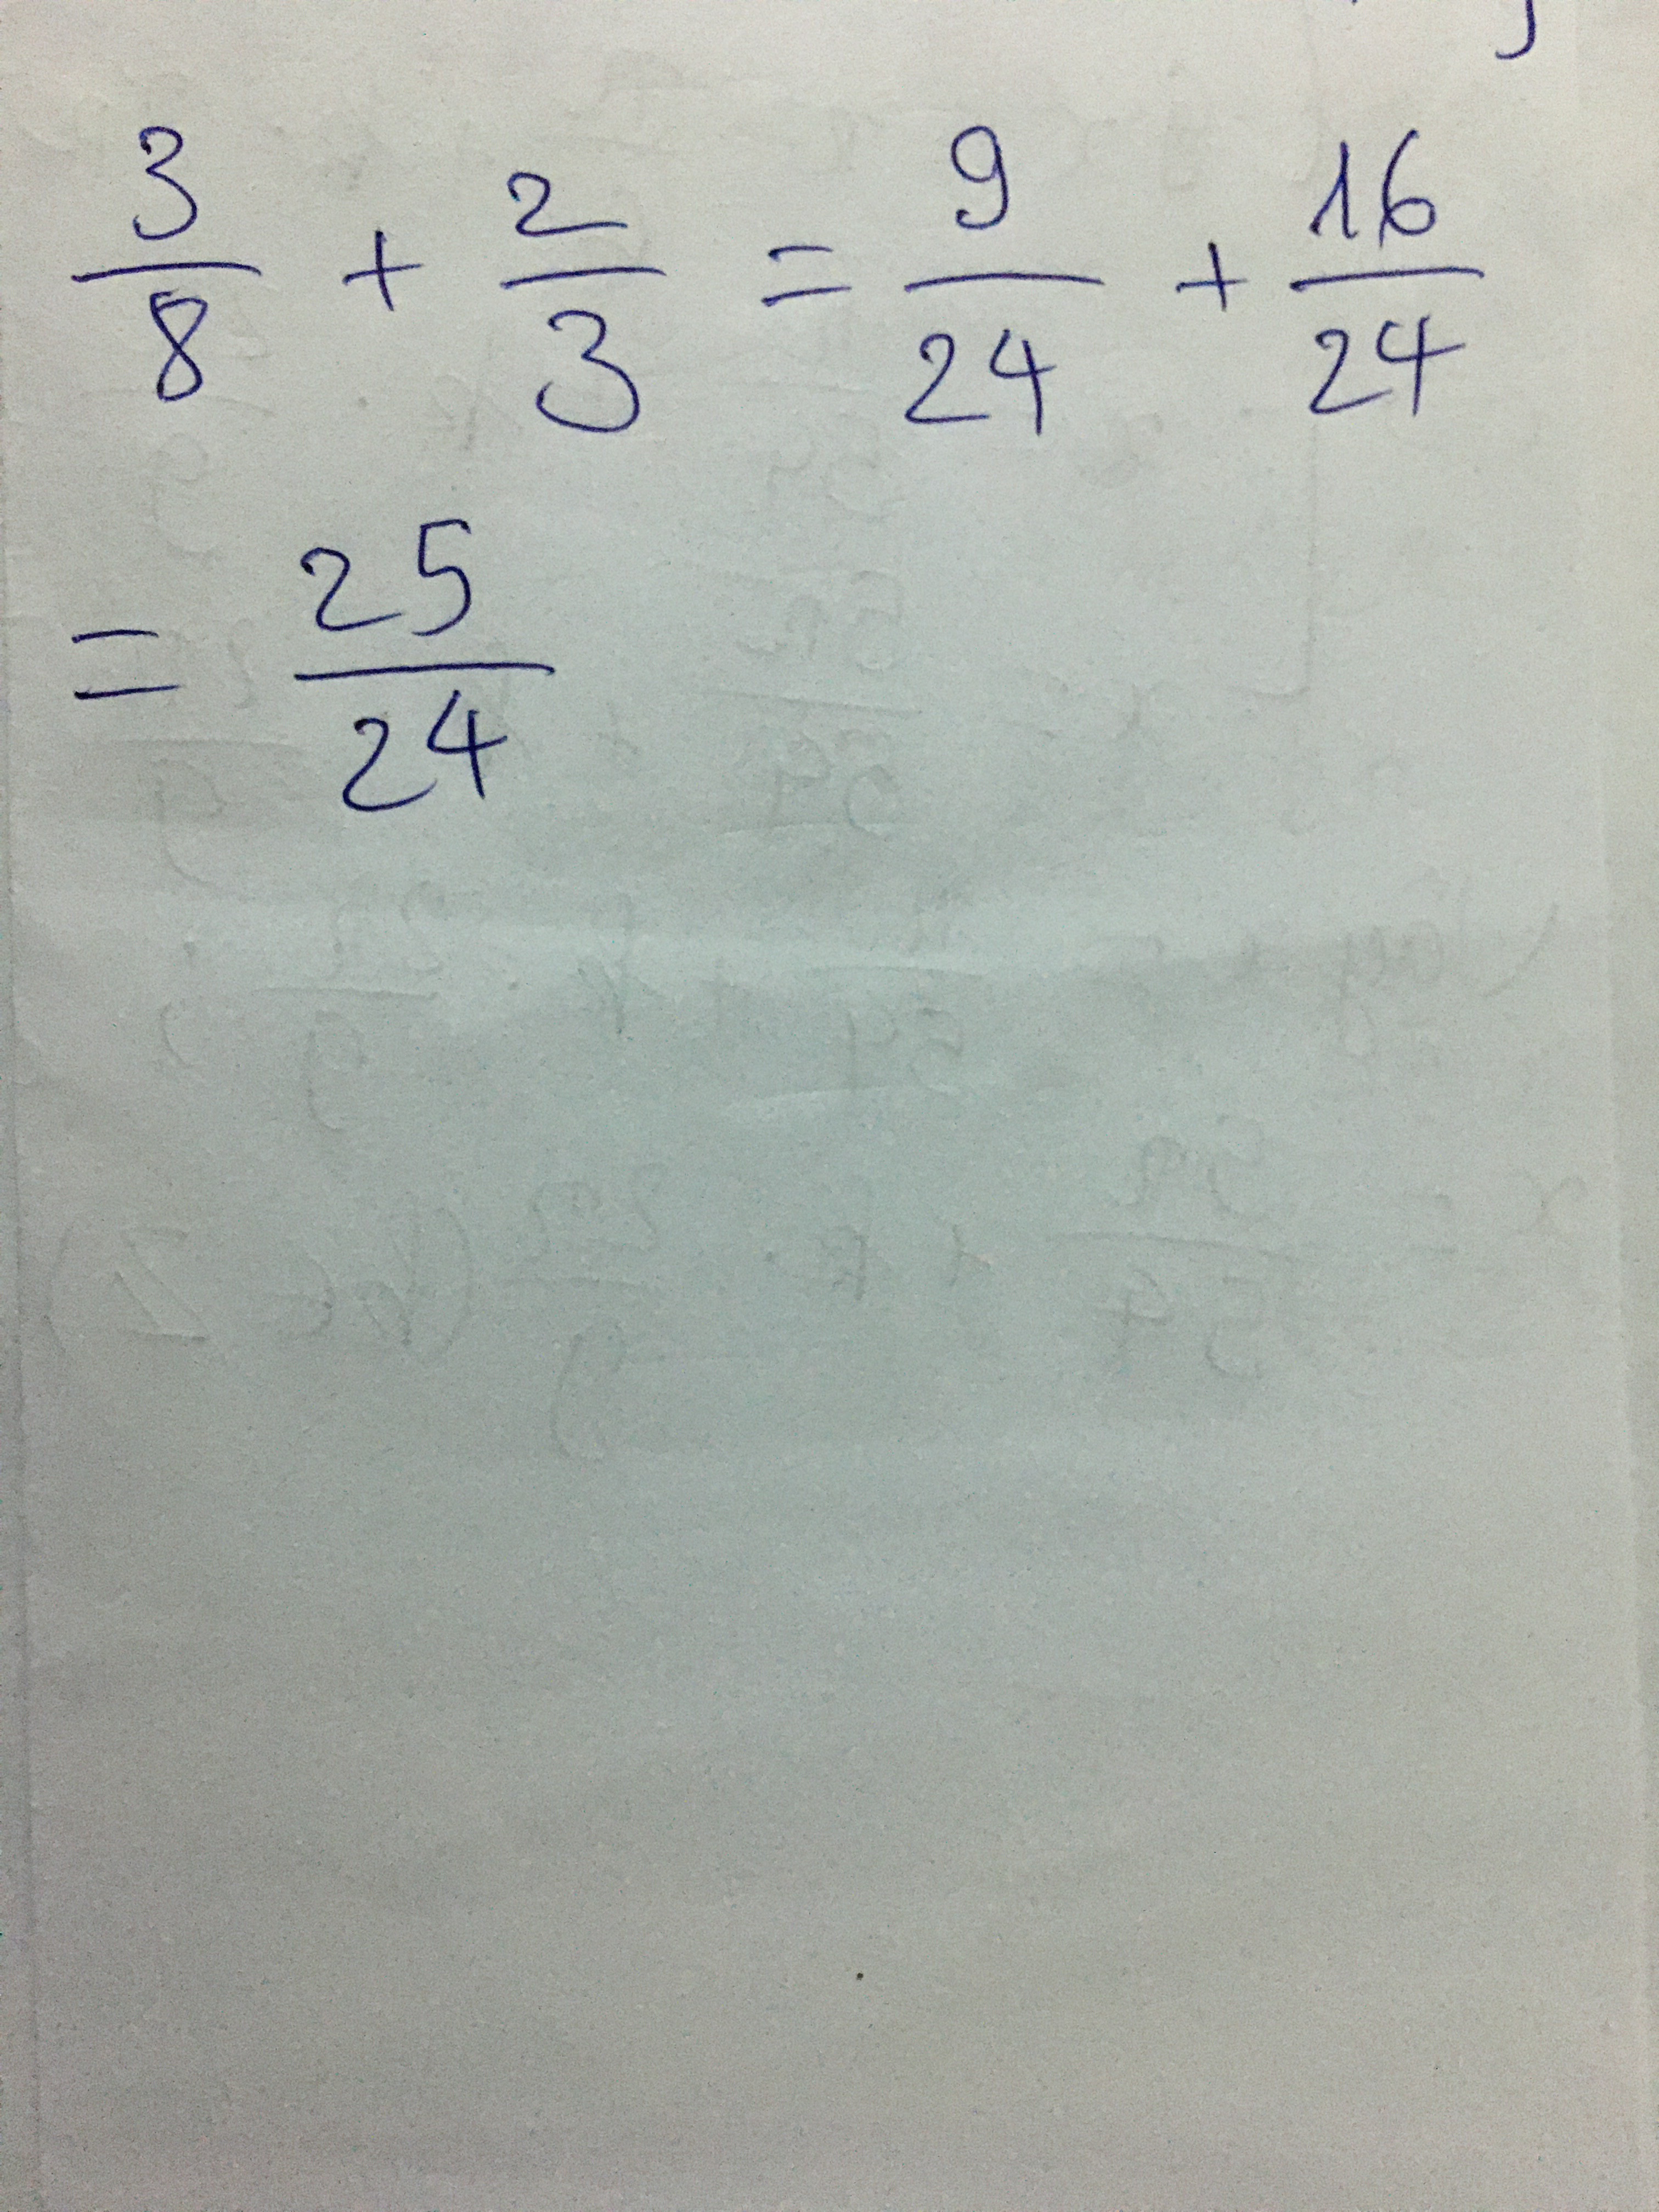 3/8 + 2/3 = 9/24 + 16/24
= 25/24